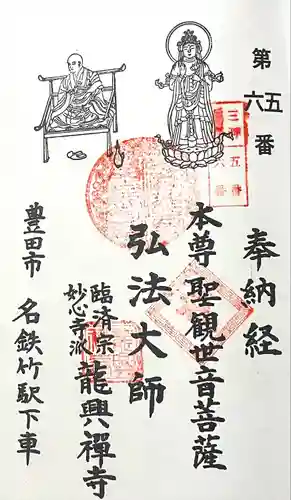 第五六番
奉納経
本尊聖観世音菩薩
弘法大師
臨済宗
妙心寺派
龍興禅寺
豊田市 名鉄竹駅下車